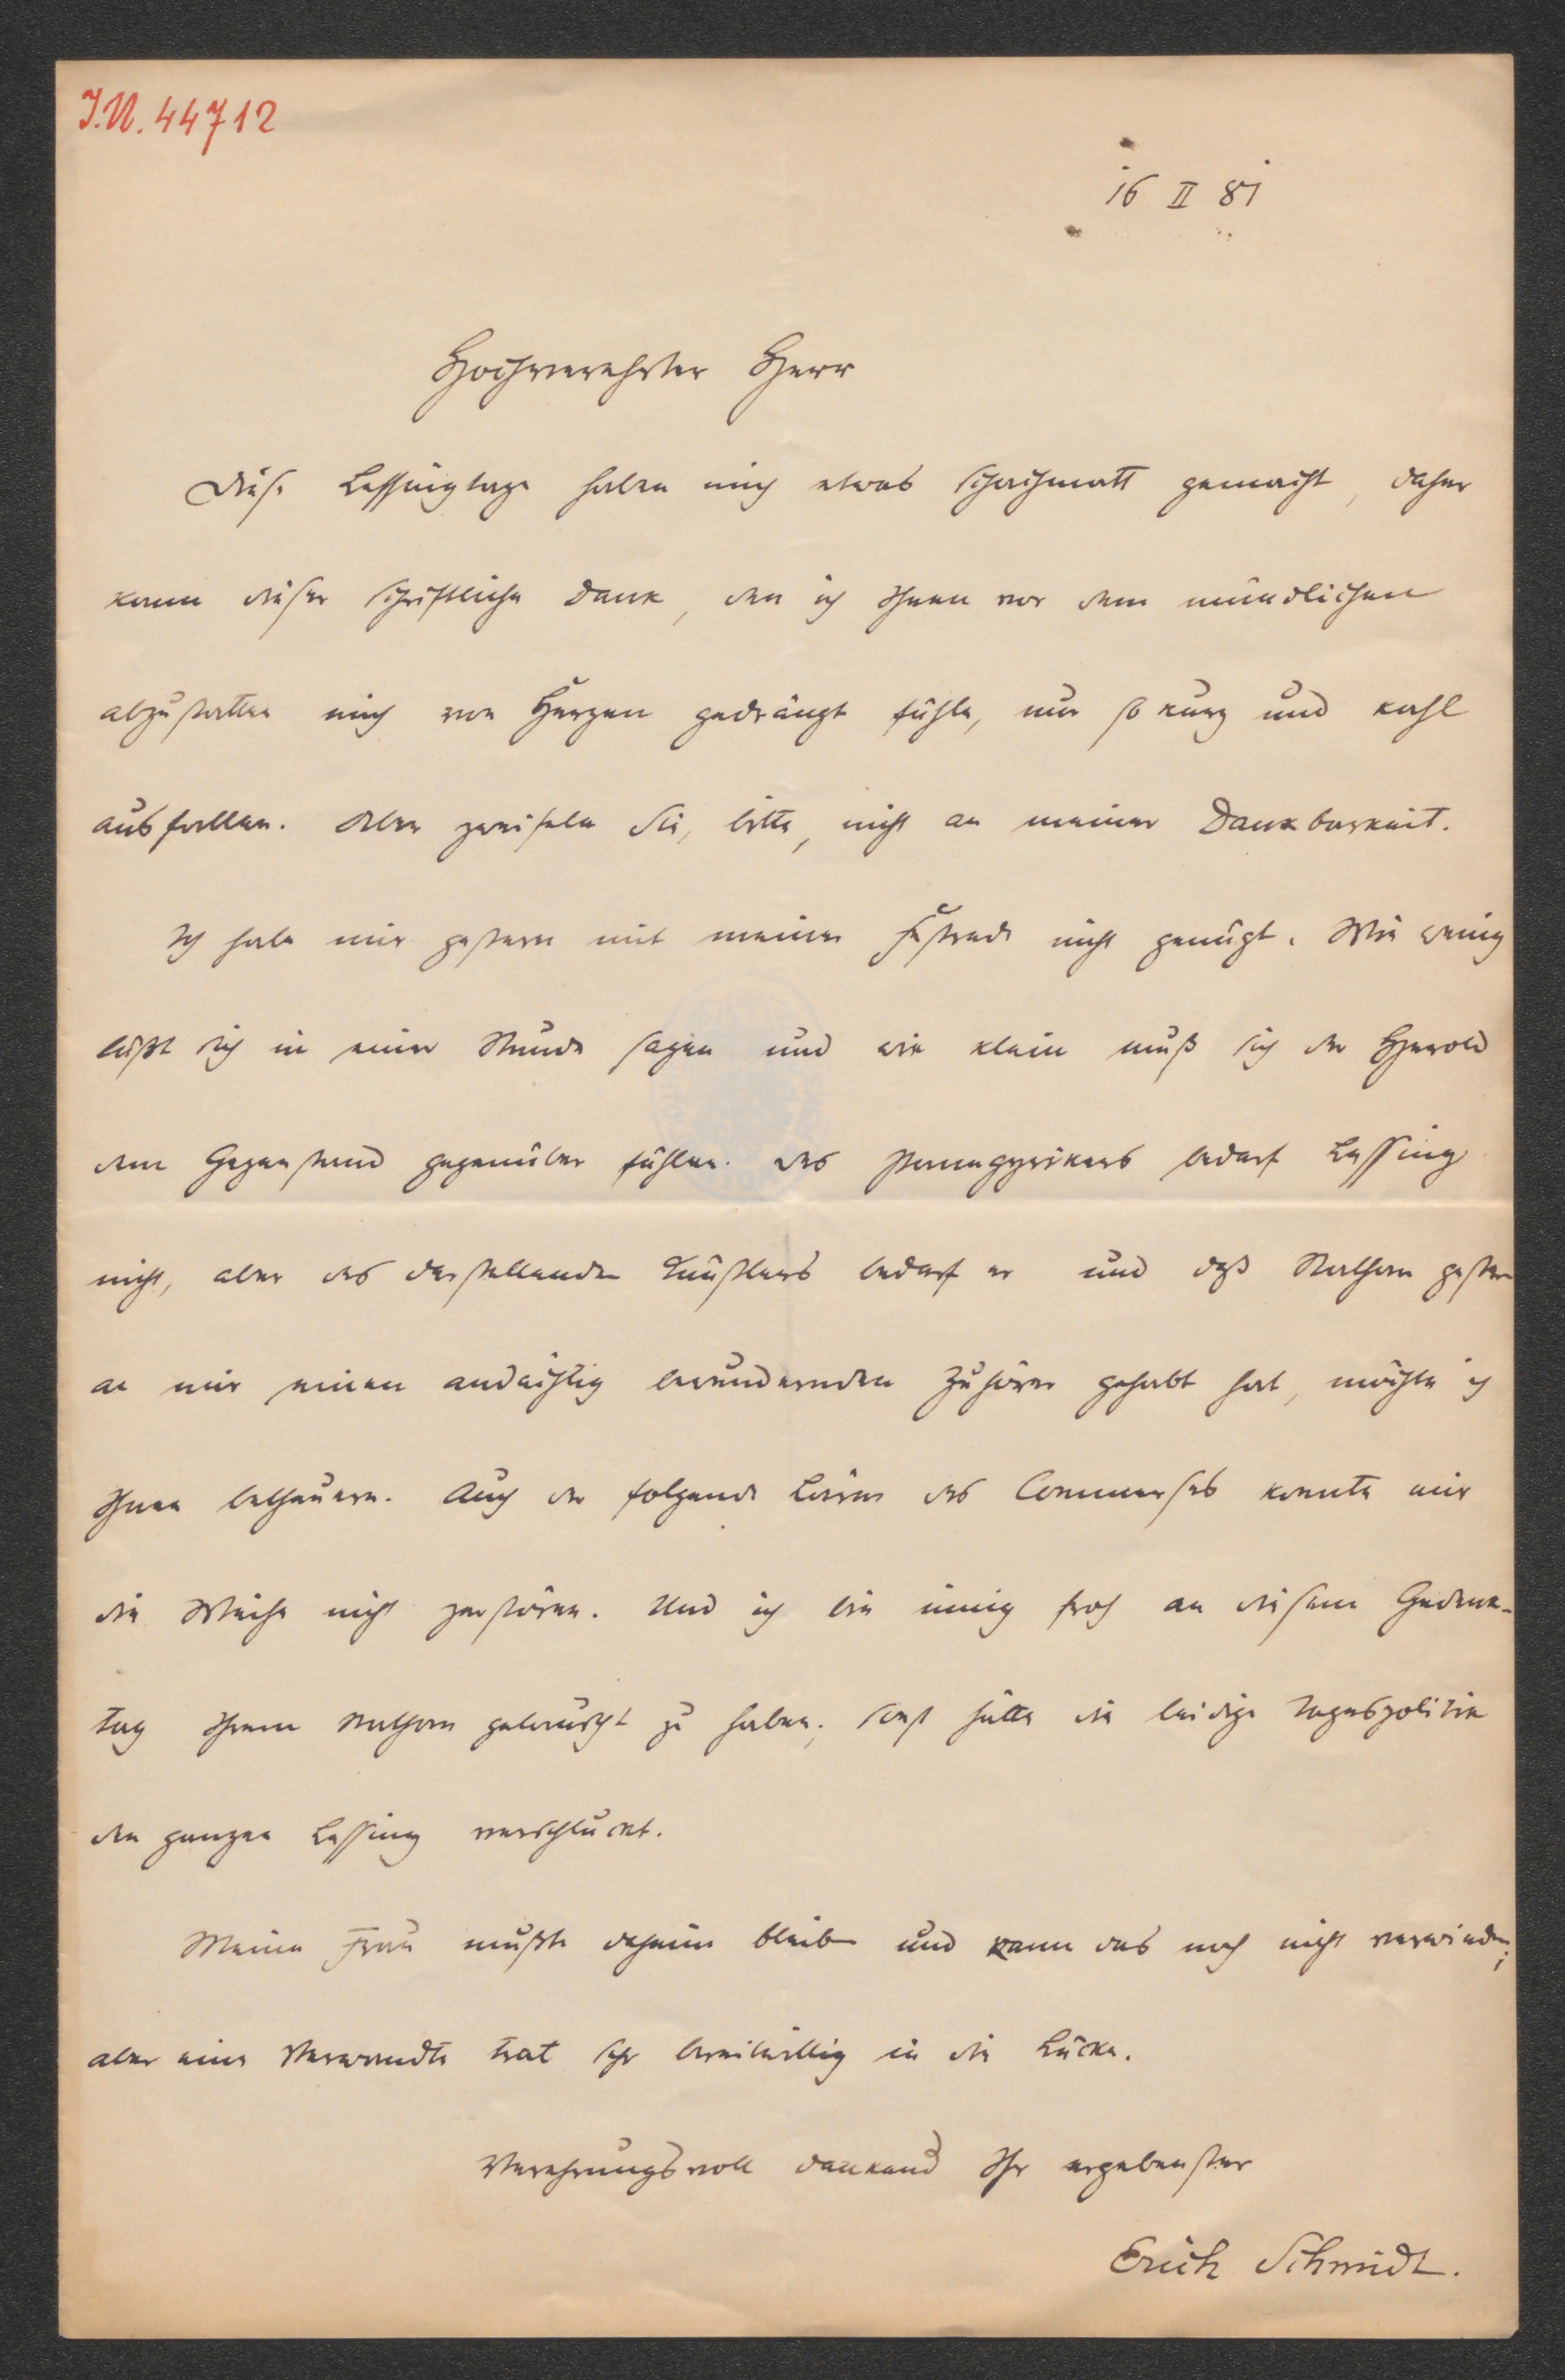 I.N. 44712
16 II 81
Hochverehrter Herr
Diese Lessingtage haben mich etwas schachmatt gemacht, daher
kann dieser schriftliche Dank, den ich Ihnen vor dem mündlichen
abzustatten mich von Herzen gedrängt fühle, nur so kurz und kahl
ausfallen. Aber zweifeln Sie, bitte, nicht an meiner Dankbarkeit.
Ich habe mir gestern mit meiner Festrede nicht genügt. Wie wenig
läßt sich in einer Stunde sagen und wie klein muß sich der Herold
dem Gegenstand gegenüber fühlen. Des Panegyrikers bedarf Lessing
nicht, aber des darstellenden Künstlers bedarf er und daß Nathan gestern
an mir einen andächtig bewundernden Zuhörer gehabt hat, möchte ich
Ihnen betheuern. Auch der folgende Lärm des Commerses konnte mir
die Weihe nicht zerstören. Und ich bin innig froh an diesem Gedenk-
tag Ihrem Nathan gelauscht zu haben; sonst hätte die leidige Tagespolitik
den ganzen Lessing verschluckt.
Meine Frau mußte daheim bleiben und kann das noch nicht verwinden;
aber eine Verwandte trat sehr bereitwillig in die Lücke.
Verehrungsvoll dankend Ihr ergebenster
Erich Schmidt.